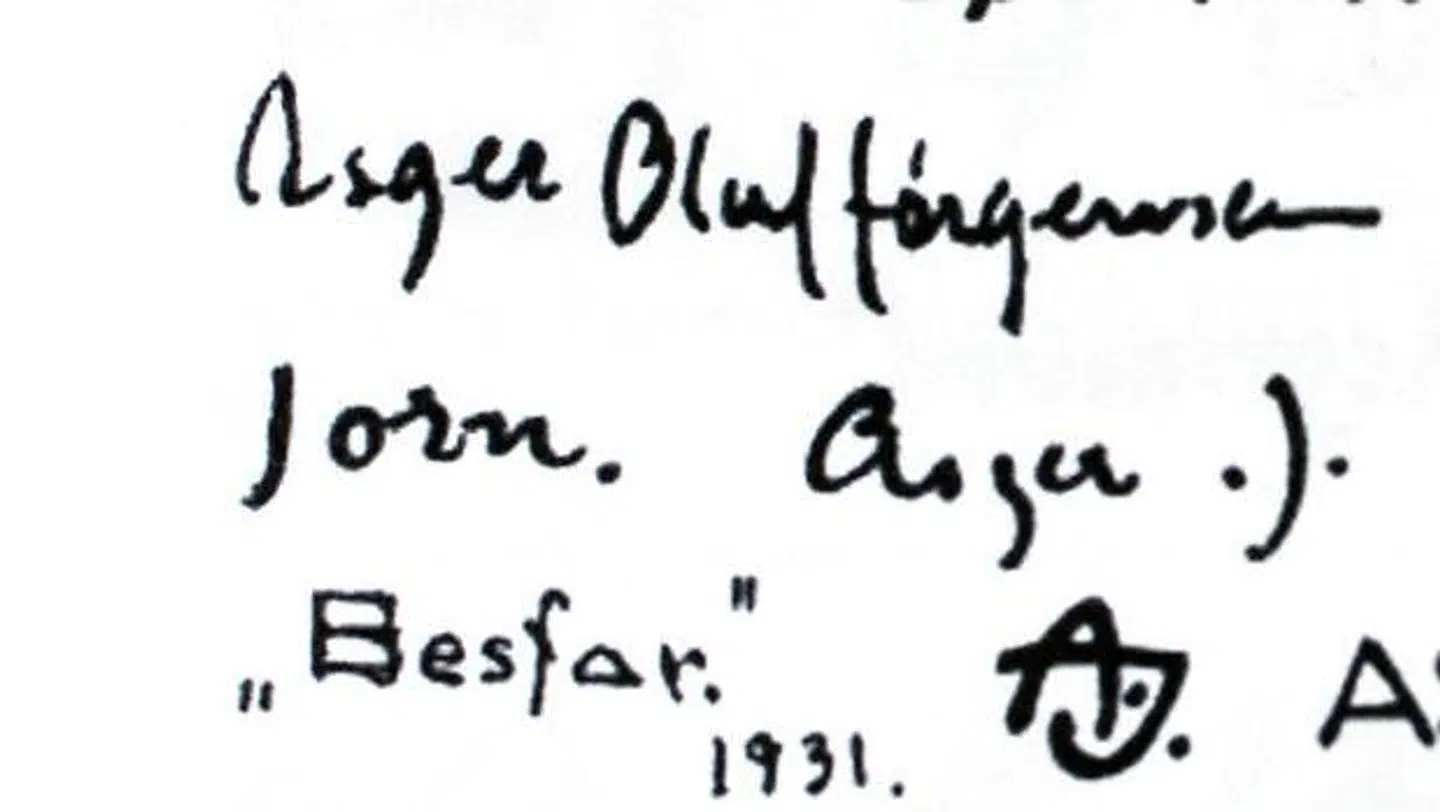 Asger Oluf Jörgensen
Jorn. Asger .J.
„Besfar."
1931. AJ. AS